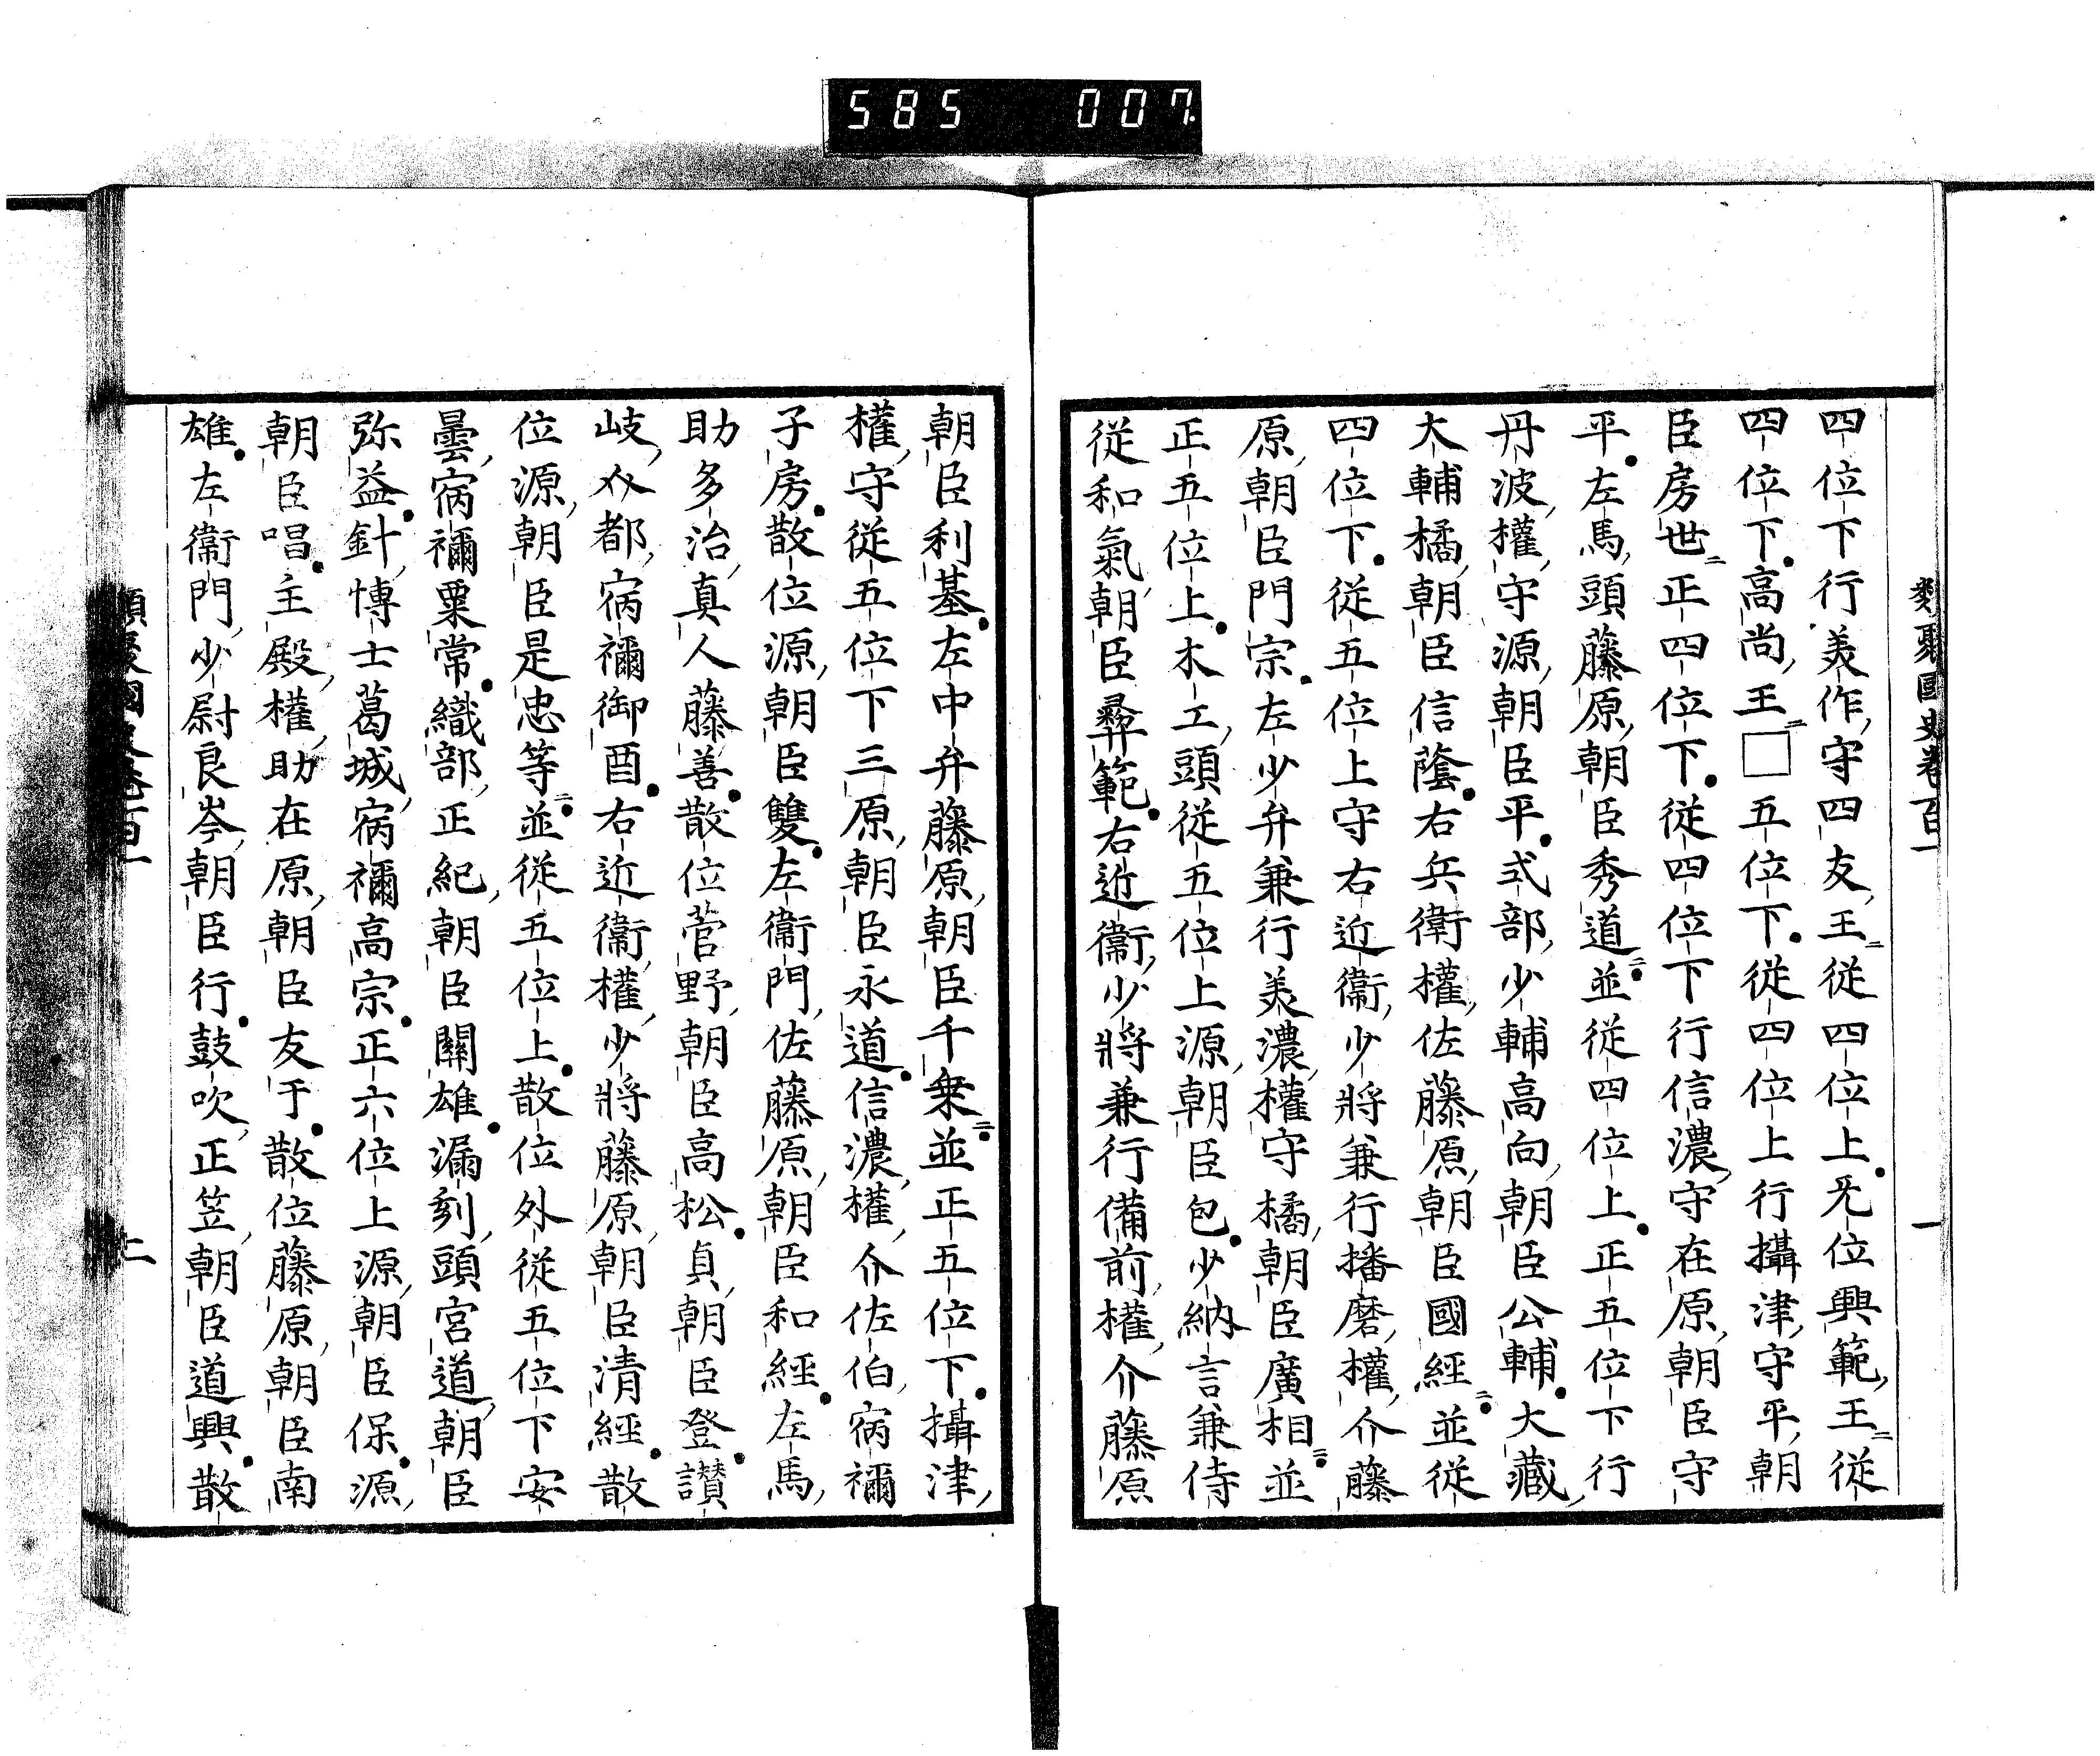 585 007
類聚國史卷百一 一
四位下行美作守四友王從四位上无位興範王從
四位下高尚王□五位下從四位上行攝津守平朝
臣房世正四位下從四位下行信濃守在原朝臣守
平左馬頭藤原朝臣秀道並從四位上正五位下行
丹波權守源朝臣平式部少輔高向朝臣公輔大藏
大輔橘朝臣信蔭右兵衛權佐藤原朝臣國經並從
四位下從五位上守右近衞少將兼行播磨權介藤
原朝臣門宗左少弁兼行美濃權守橘朝臣廣相並
正五位上木工頭從五位上源朝臣包少納言兼侍
從和氣朝臣彝範右近衞少將兼行備前權介藤原
朝臣利基左中弁藤原朝臣千乗並正五位下攝津
權守從五位下三原朝臣永道信濃權介佐伯宿禰
子房散位源朝臣雙左衞門佐藤原朝臣和經左馬
助多治真人藤善散位菅野朝臣高松貞朝臣登讃
岐都宿禰御酉右近衞權少將藤原朝臣清經散
位源朝臣是忠等並從五位上散位外從五位下安
曇宿禰粟常織部正紀朝臣關雄漏刻頭宮道朝臣
弥益針博士葛城宿禰高宗正六位上源朝臣保源
朝臣唱主殿權助在原朝臣友于散位藤原朝臣南
雄左衞門少尉良岑朝臣行鼓吹正笠朝臣道興散
類聚國史卷百一 二